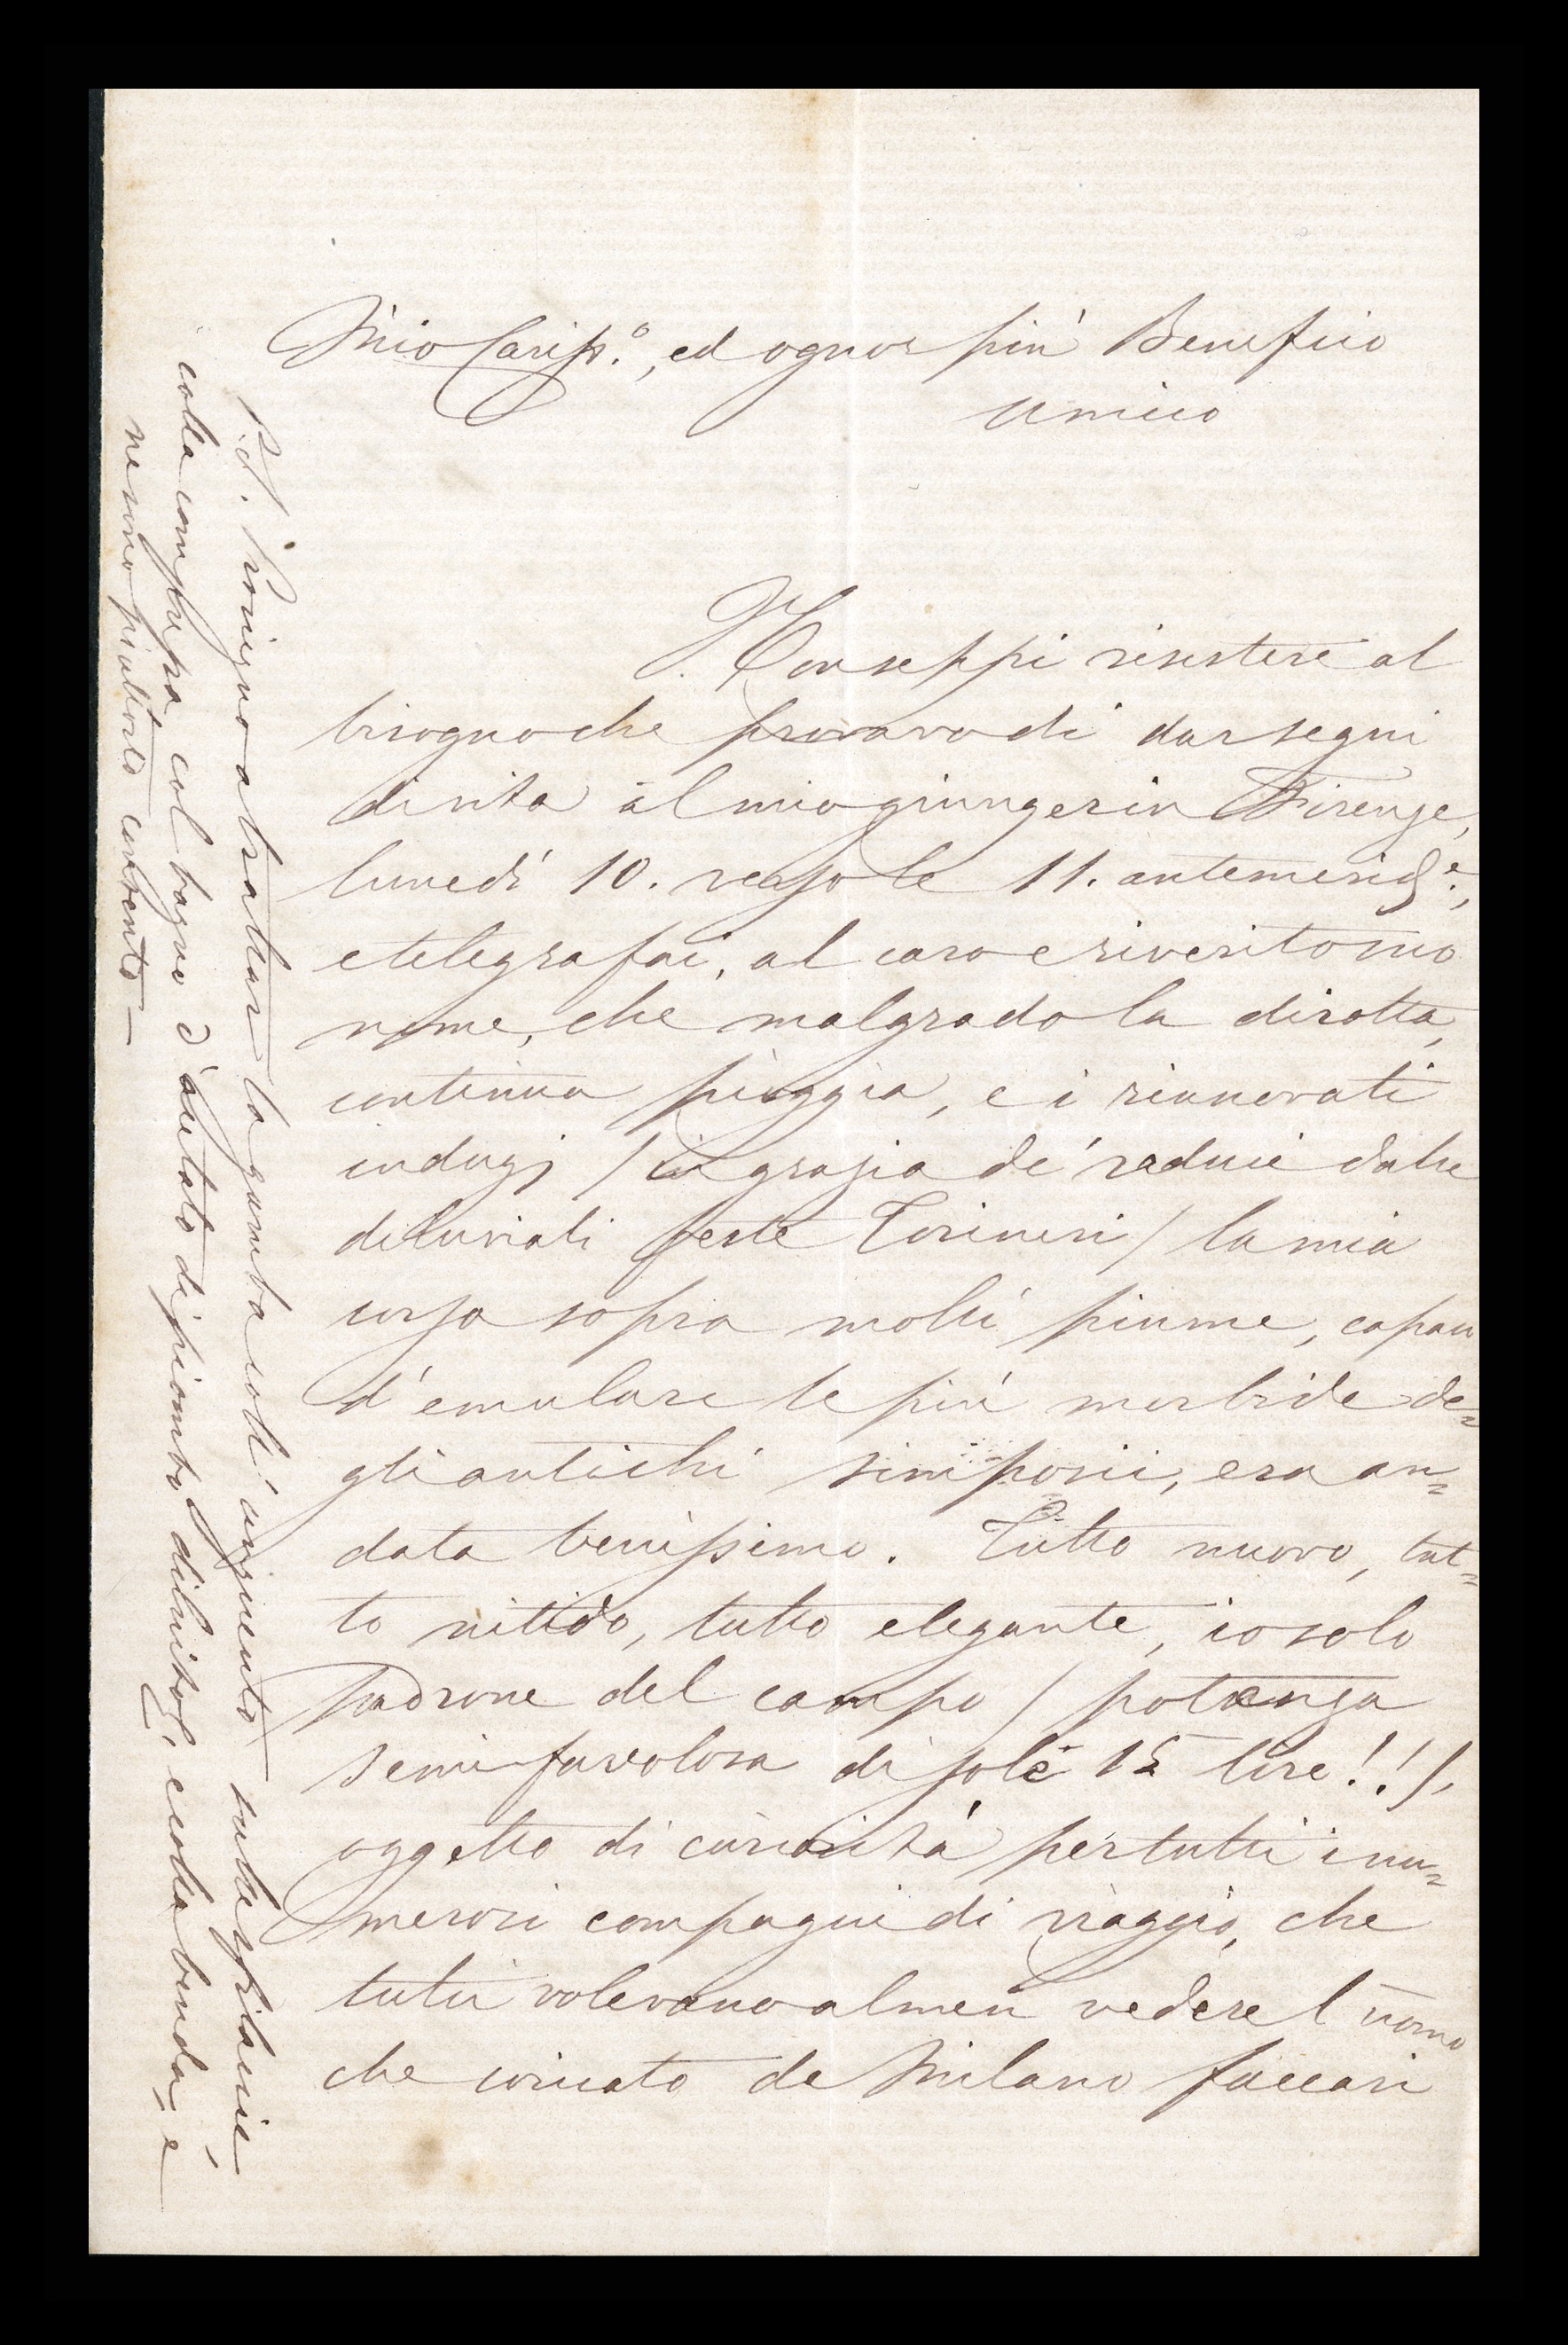 Mio Cariss.º, ed ognor più Benefico
Amico
Non seppi resistere al
bisogno che provavo di dar segni
di vita al mio giunger in Firenze,
lunedì 10. verso le 11. antemerid.e,
e telegrafai, al caro e riverito suo
nome, che malgrado la dirotta,
continua pioggia, e i rinnovati
indugj / in grazia de' reduci dalle
diluviali feste Torinesi / la mia
corsa sopra molli piume, capaci
d'emulare le più morbide de=
gli antichi simposii, era an=
data benissimo. Tutto nuovo, tut=
to nitido, tutto elegante, io solo
padrone del campo / potenza
semi-favolosa di sole 15 lire!! /,
oggetto di curiosità per tutti i nu=
merosi compagni di viaggio, che
tutti volevano almen vedere l'uomo
che coricato da Milano faceasi
P.S. Proseguo a trattar la gamba coll'unguento sulle
colla compressa col bagno d'acetato di piombo diluito, e colla benda, e
ne sono piuttosto contento —